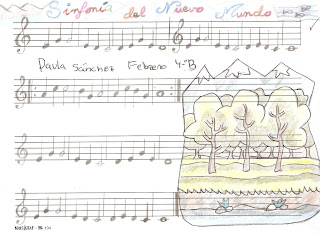 Sinfonía del Nuevo Mundo
Paula Sánchez Febrero 4-B